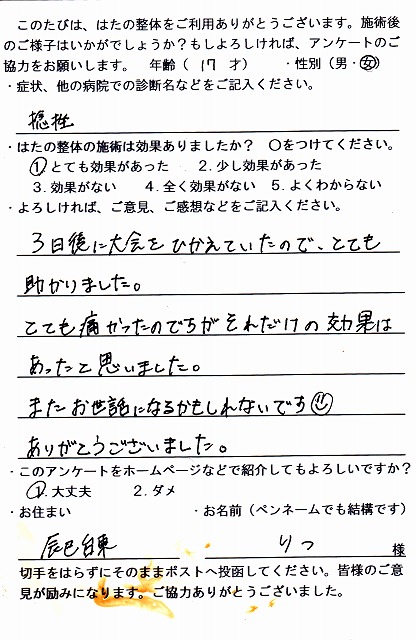 このたびは、はたの整体をご利用ありがとうございます。施術後
のご様子はいかがでしょうか？もしよろしければ、アンケートのご
協力をお願いします。 年齢（ 17 才） ・性別（男・女）
・症状、他の病院での診断名などをご記入ください。
捻挫
・はたの整体の施術は効果ありましたか？ ○をつけてください。
1 とても効果があった 2. 少し効果があった
3. 効果がない 4. 全く効果がない 5. よくわからない
・よろしければ、ご意見、ご感想などをご記入ください。
3日後に大会をひかえていたので、とても
助かりました。
とても痛かったのですがそれだけの効果は
あったと思いました。
またお世話になるかもしれないです
ありがとうございました。
・このアンケートをホームページなどで紹介してもよろしいですか？
1. 大丈夫 2. ダメ
・お住まい ・お名前（ペンネームでも結構です）
辰巳台東 りつ 様
切手をはらずにそのままポストへ投函してください。皆様のご意
見が励みになります。ご協力ありがとうございました。